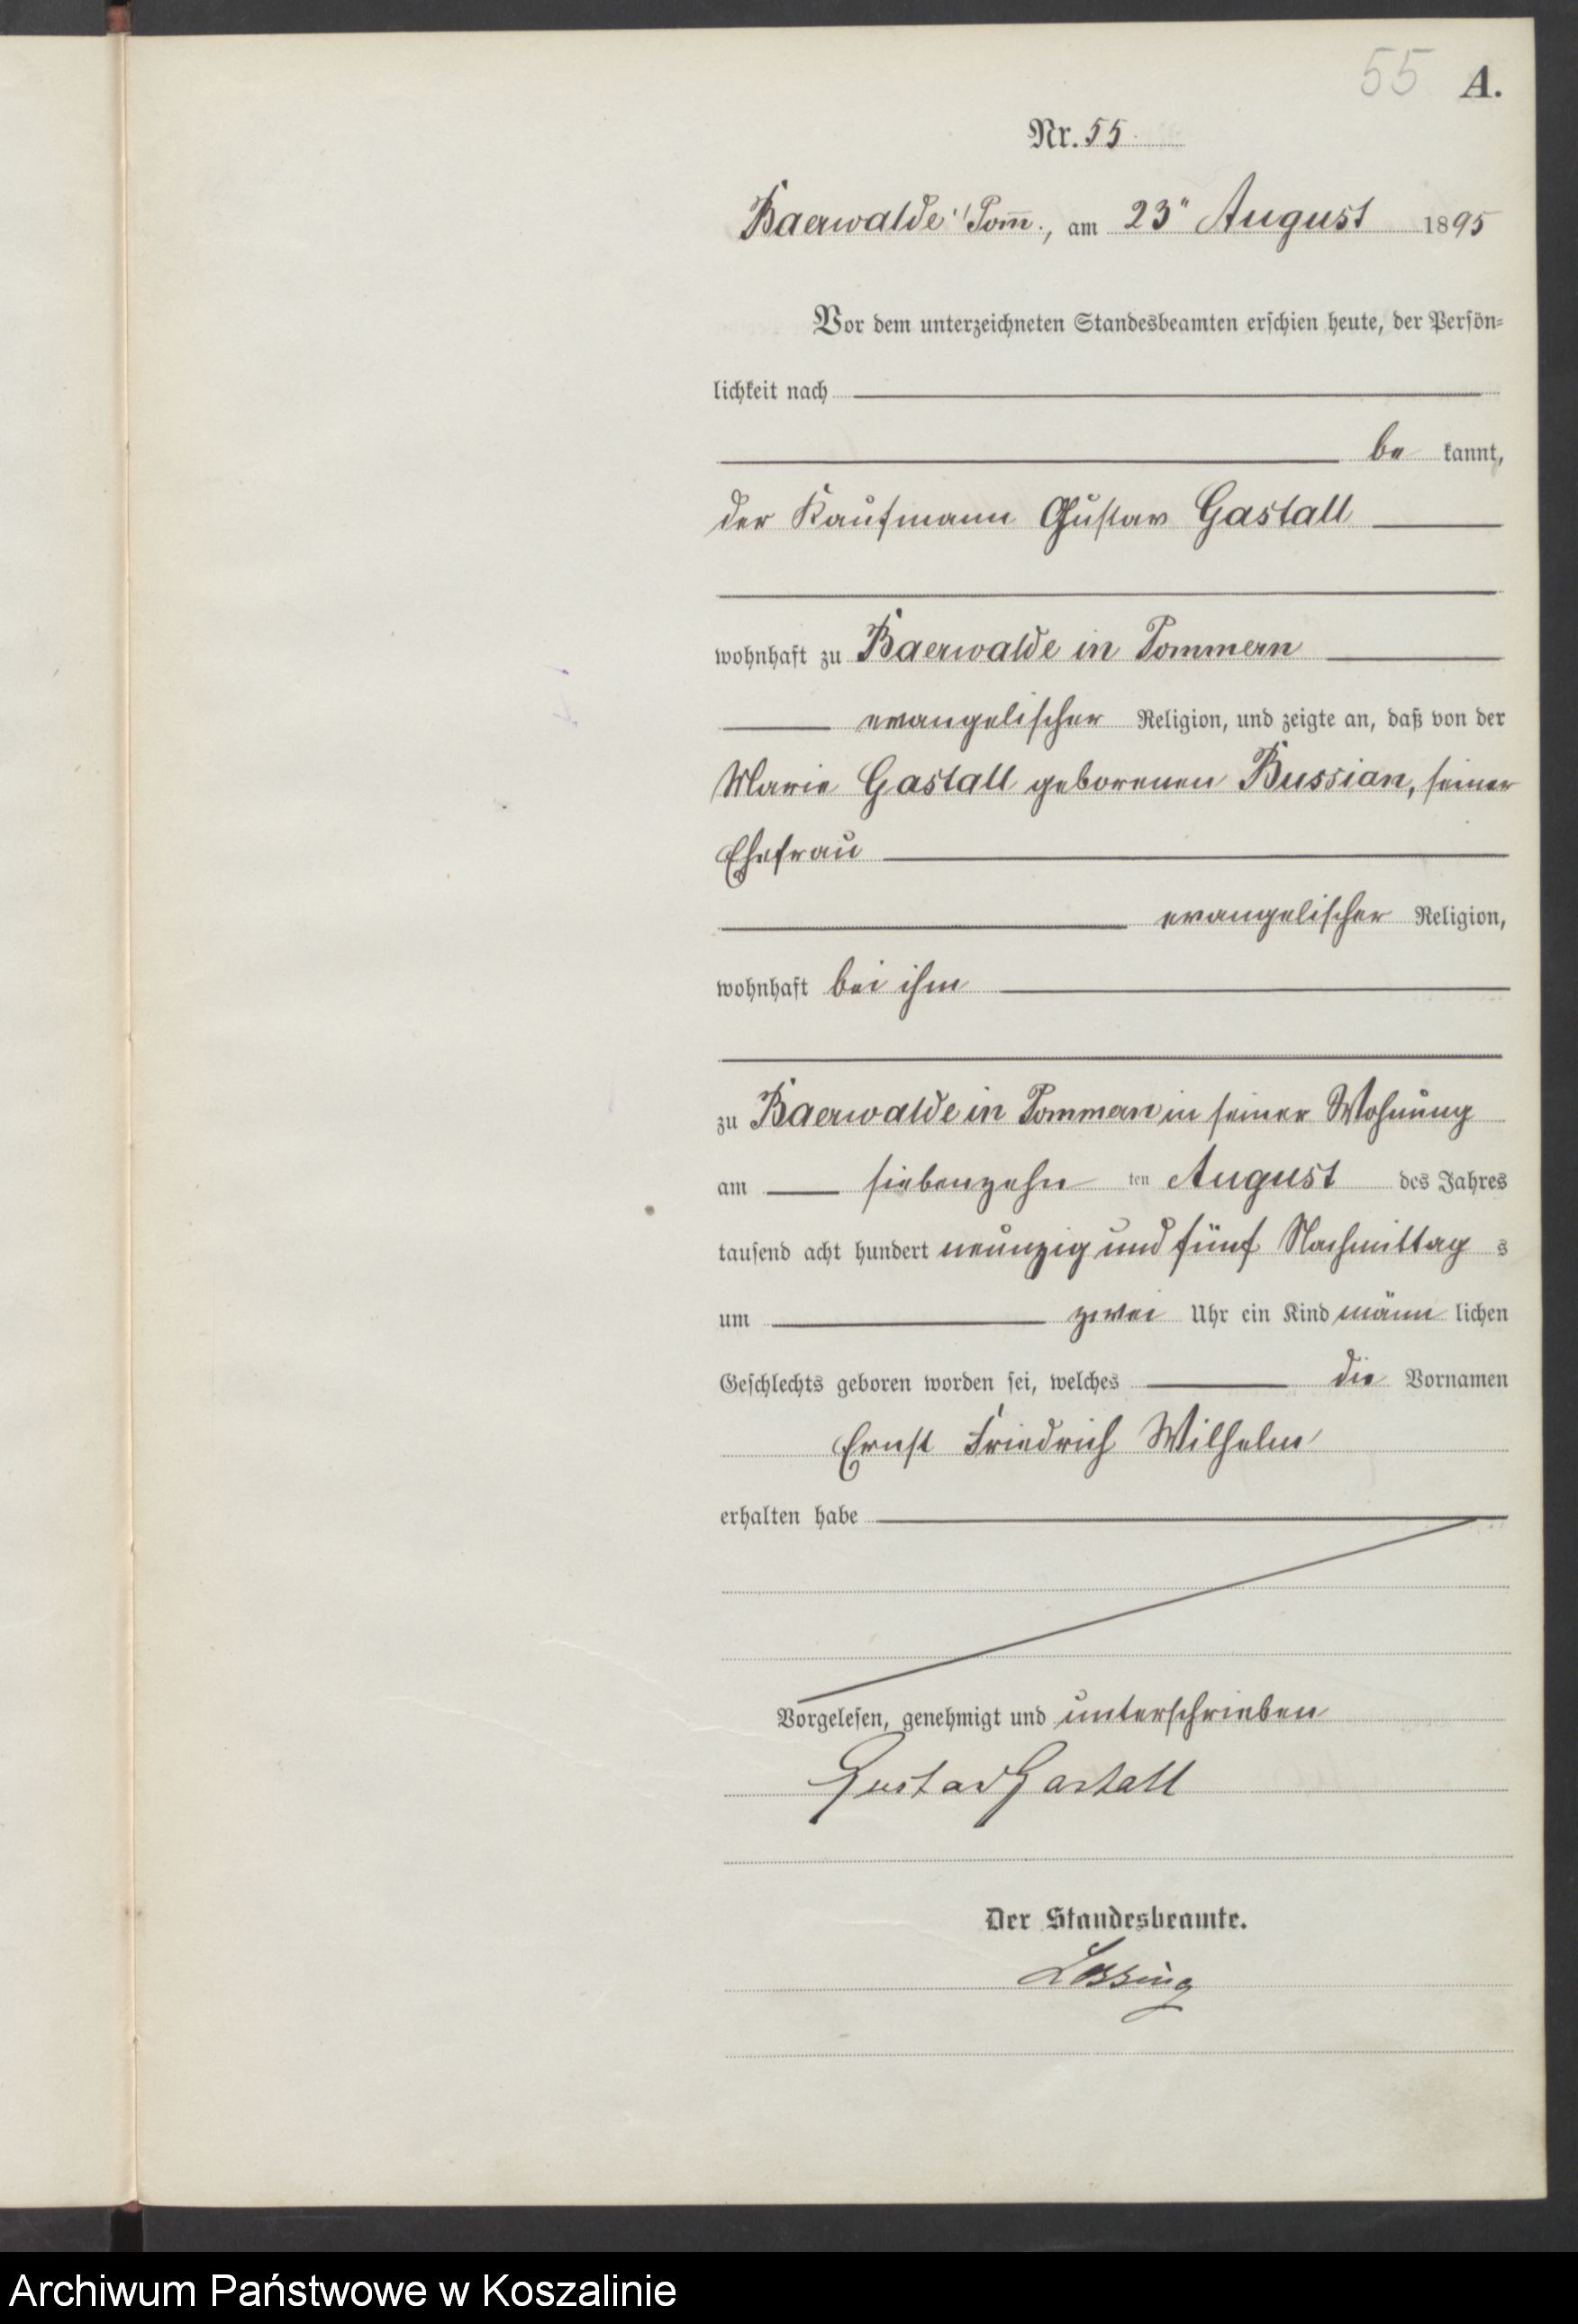 55 A.
Nr. 55
Baerwalde i/Pom̅., am 23ⁿ August 1895
Vor dem unterzeichneten Standesbeamten erschien heute, der Persön=
lichkeit nach
be kannt,
der Kaufmann Gustav Gastall
wohnhaft zu Baerwalde in Pommern
evangelischer Religion, und zeigte an, daß von der
Marie Gastall geborenen Bussian, seiner
Ehefrau
evangelischer Religion,
wohnhaft bei ihm
zu Baerwalde in Pommern in seiner Wohnung
am siebenzehn ten August des Jahres
tausend acht hundert neunzig und fünf Nachmittag s
um zwei Uhr ein Kind männ lichen
Geschlechts geboren worden sei, welches die Vornamen
Ernst Friedrich Wilhelm
erhalten habe
Vorgelesen, genehmigt und unterschrieben
Gustav Gastall
Der Standesbeamte.
Lessing
Archiwum Państwowe w Koszalinie